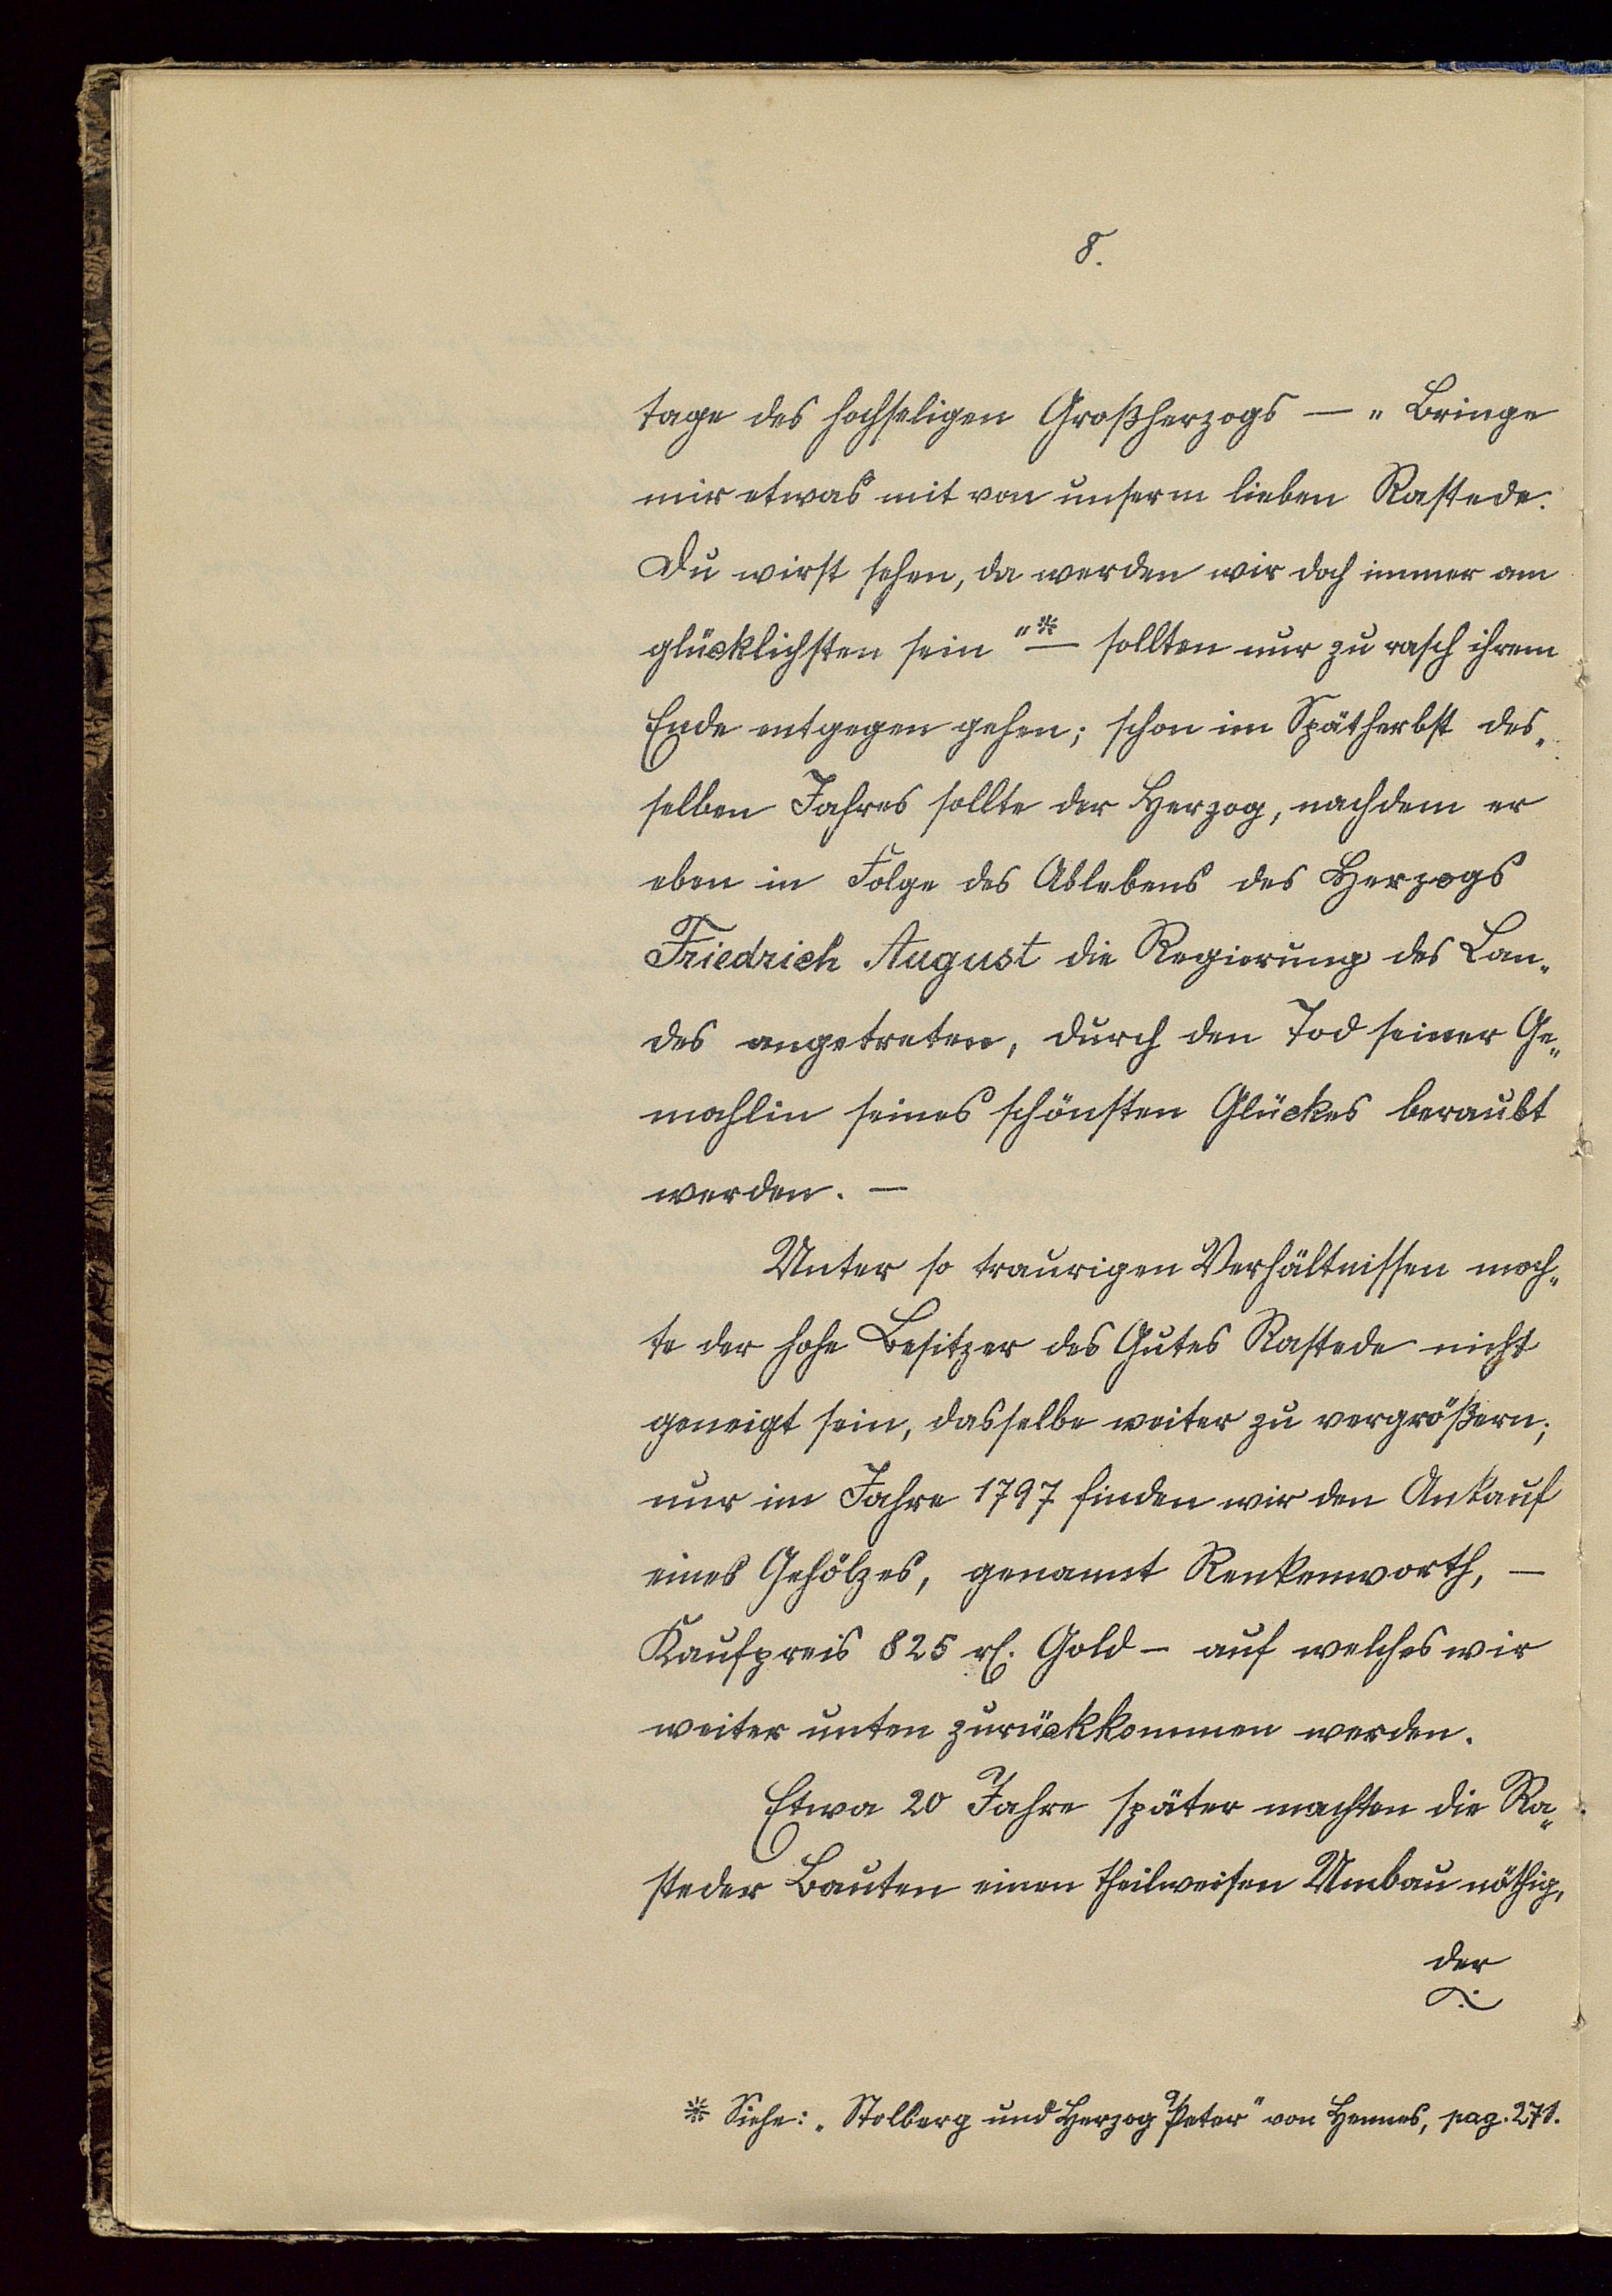 8.
tage des hochseligen Großherzogs — „Bringe
mir etwas mit von unserm lieben Rastede.
Du wirst sehen, da werden wir doch immer am
glücklichsten sein"* — sollten nur zu rasch ihrem
Ende entgegen gehen; schon im Spätherbst des„
selben Jahres sollte der Herzog, nachdem er
eben in Folge des Ablebens des Herzogs
Friedrich August die Regierung des Lan„
des angetreten, durch den Tod seiner Ge„
mahlin seines schönsten Glückes beraubt
werden. —
Unter so traurigen Verhältnissen moch„
te der hohe Besitzer des Gutes Rastede nicht
geneigt sein, dasselbe weiter zu vergrößern;
nur im Jahre 1797 finden wir den Ankauf
eines Gehölzes, genannt Renkenworth, —
Kaufpreis 825 rℓ. Gold — auf welches wir
weiter unten zurückkommen werden.
Etwa 20 Jahre später machten die Ra„
steder Bauten einen theilweisen Umbau nöthig,
der
* Siehe: „Stolberg und Herzog Peter" von Hennes, pag. 271.